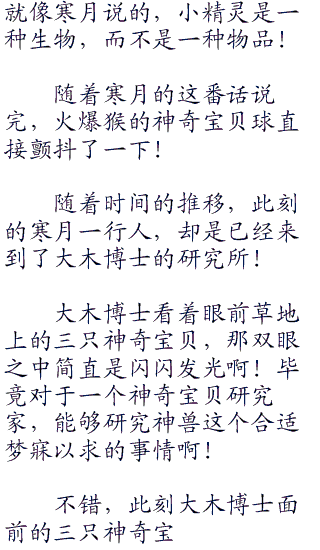 就像寒月说的，小精灵是一
种生物，而不是一种物品！
随着寒月的这番话说
完，火爆猴的神奇宝贝球直
接颤抖了一下！
随着时间的推移，此刻
的寒月一行人，却是已经来
到了大木博士的研究所！
大木博士看着眼前草地
上的三只神奇宝贝，那双眼
之中简直是闪闪发光啊！毕
竟对于一个神奇宝贝研究
家，能够研究神兽这个合适
梦寐以求的事情啊！
不错，此刻大木博士面
前的三只神奇宝